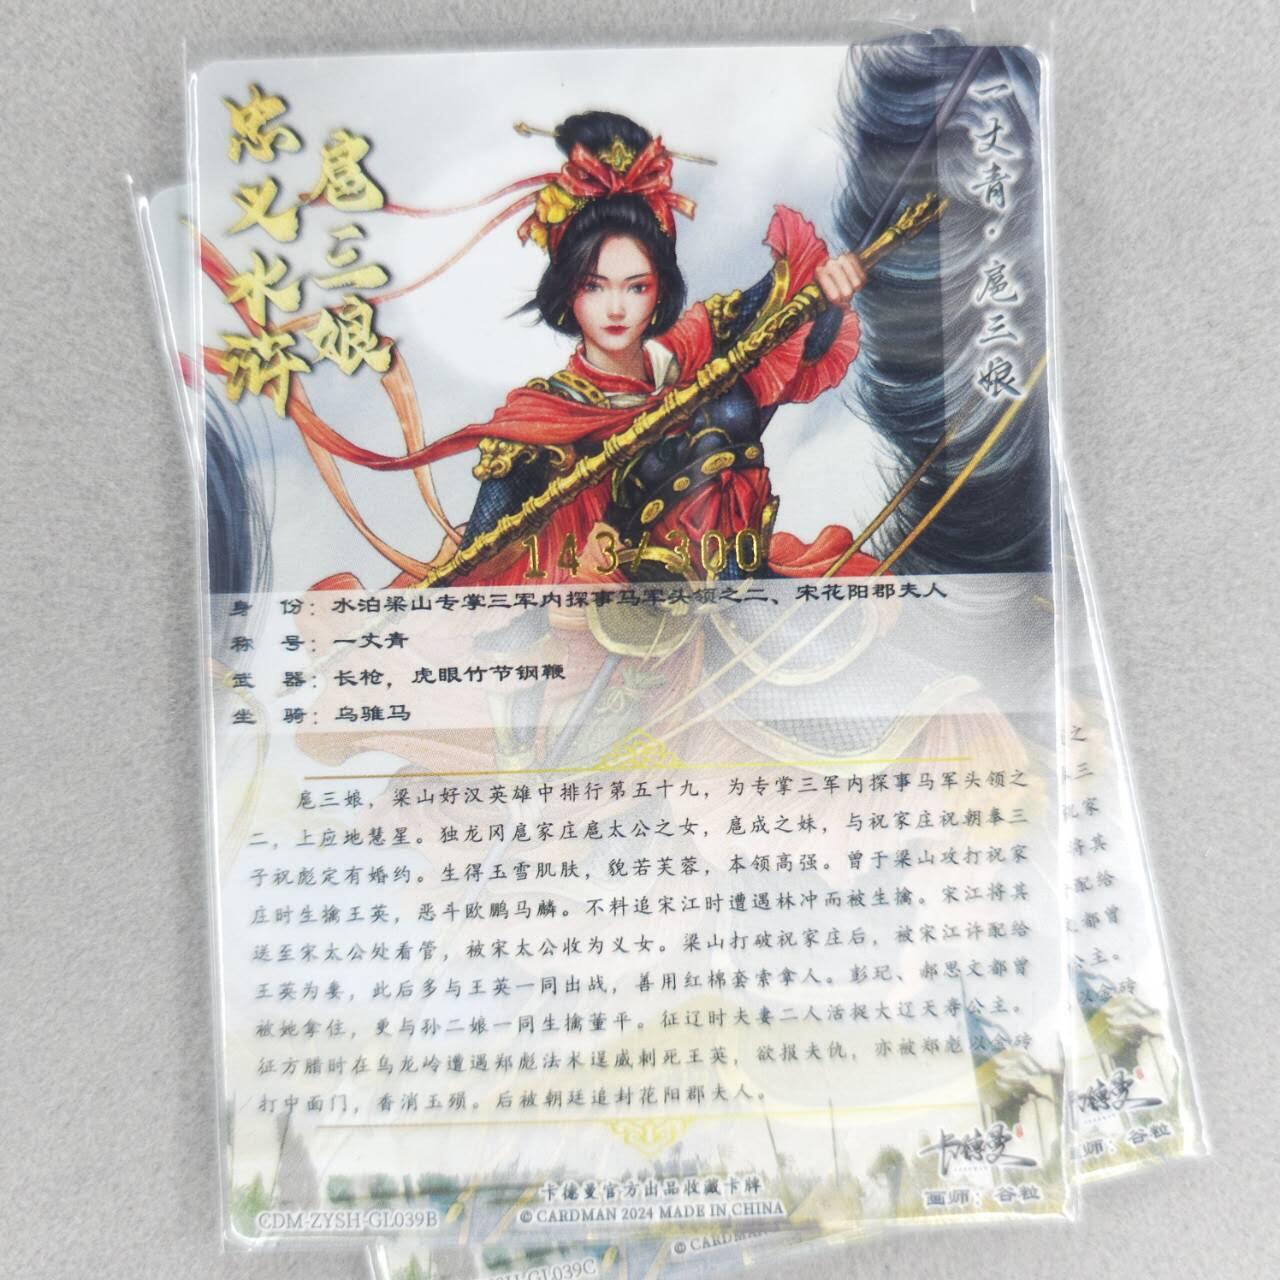 忠义水浒
扈三娘
一丈青·扈三娘
143/300
身 份：水泊梁山专掌三军内探事马军头领之二、宋花阳郡夫人
称 号：一丈青
武 器：长枪，虎眼竹节钢鞭
坐 骑：乌骓马
扈三娘，梁山好汉英雄中排行第五十九，为专掌三军内探事马军头领之
二，上应地慧星。独龙冈扈家庄扈太公之女，扈成之妹，与祝家庄祝朝奉三
子祝彪定有婚约。生得玉雪肌肤，貌若芙蓉，本领高强。曾于梁山攻打祝家
庄时生擒王英，恶斗欧鹏马麟。不料追宋江时遭遇林冲而被生擒。宋江将其
送至宋太公处看管，被宋太公收为义女。梁山打破祝家庄后，被宋江许配给
王英为妻，此后多与王英一同出战，善用红棉套索拿人。彭玘、郝思文都曾
被她拿住，更与孙二娘一同生擒董平。征辽时夫妻二人活捉大辽天寿公主。
征方腊时在乌龙岭遭遇郑彪法术逞威刺死王英，欲报夫仇，亦被郑彪以金砖
打中面门，香消玉殒。后被朝廷追封花阳郡夫人。
卡德曼
画师：谷粒
卡德曼官方出品收藏卡牌
© CARDMAN 2024 MADE IN CHINA
CDM-ZYSH-GL039B
之
三
祝家
将其
配给
都曾
公主。
以金砖
卡德曼
画师：谷粒
© CARDMAN
SH-GL039C